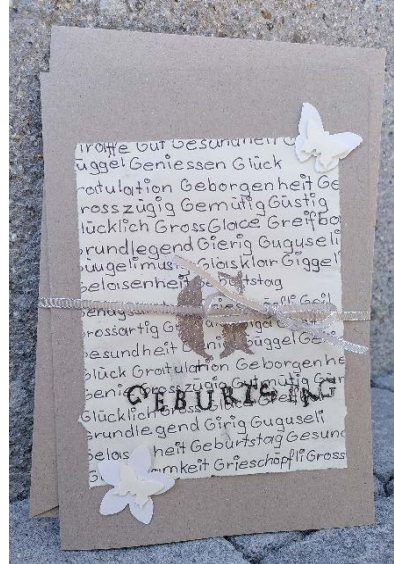 Giraffe Gut Gesundheit G
üggel Geniessen Glück
ratulation Geborgenheit Ge
rosszügig Gemütig Güstig
lücklich GrossGlace Greifbo
rundlegend Gierig Guguseli
Güügelimusi Glasklar Giggel
elassenheit Geburtstag
Genuss Grieschöpfli Geil
rossartig G
esundheit Geni üggel Gen
lück Gratulation Geborgenhe
Genie Grosszügig Gutmütig Gün
G
GEBURTSTAG
Glücklich Gross Glace
rundlegend Girig Guguseli
elas heit Geburtstag Gesun
mkeit Grieschöpfli Gross